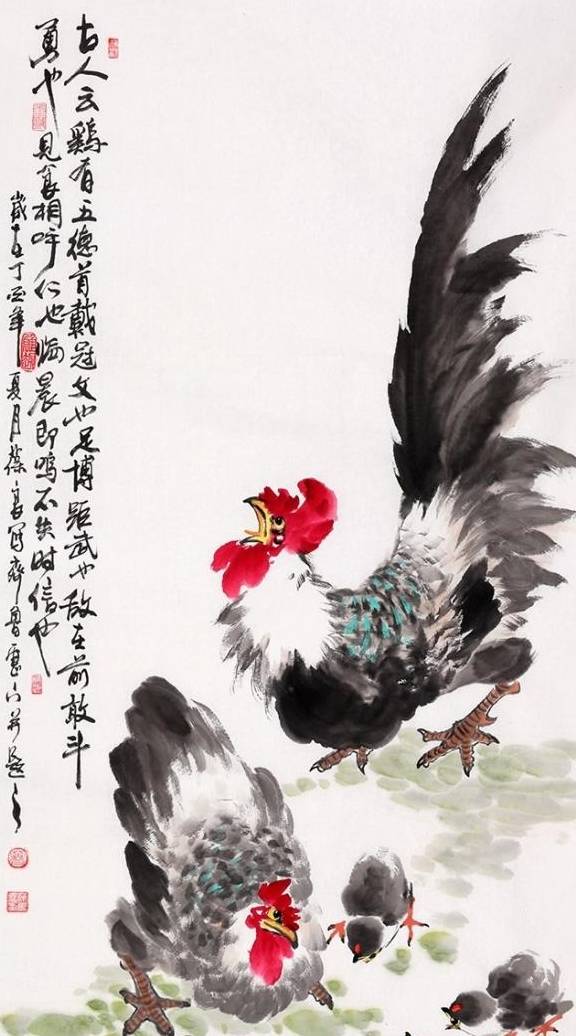 古人云鷄有五德首戴冠文也足博距武也敌在前敢斗
勇也见食相呼仁也临晨即鸣不失时信也
歲在丁酉年夏月葆写齊魯并题